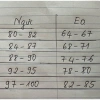 Ngữ En
80 - 82 64 - 67
84 - 87 68 - 71
88 - 90 74 - 76
92 - 95 78 - 80
97 - 100 82 - 85